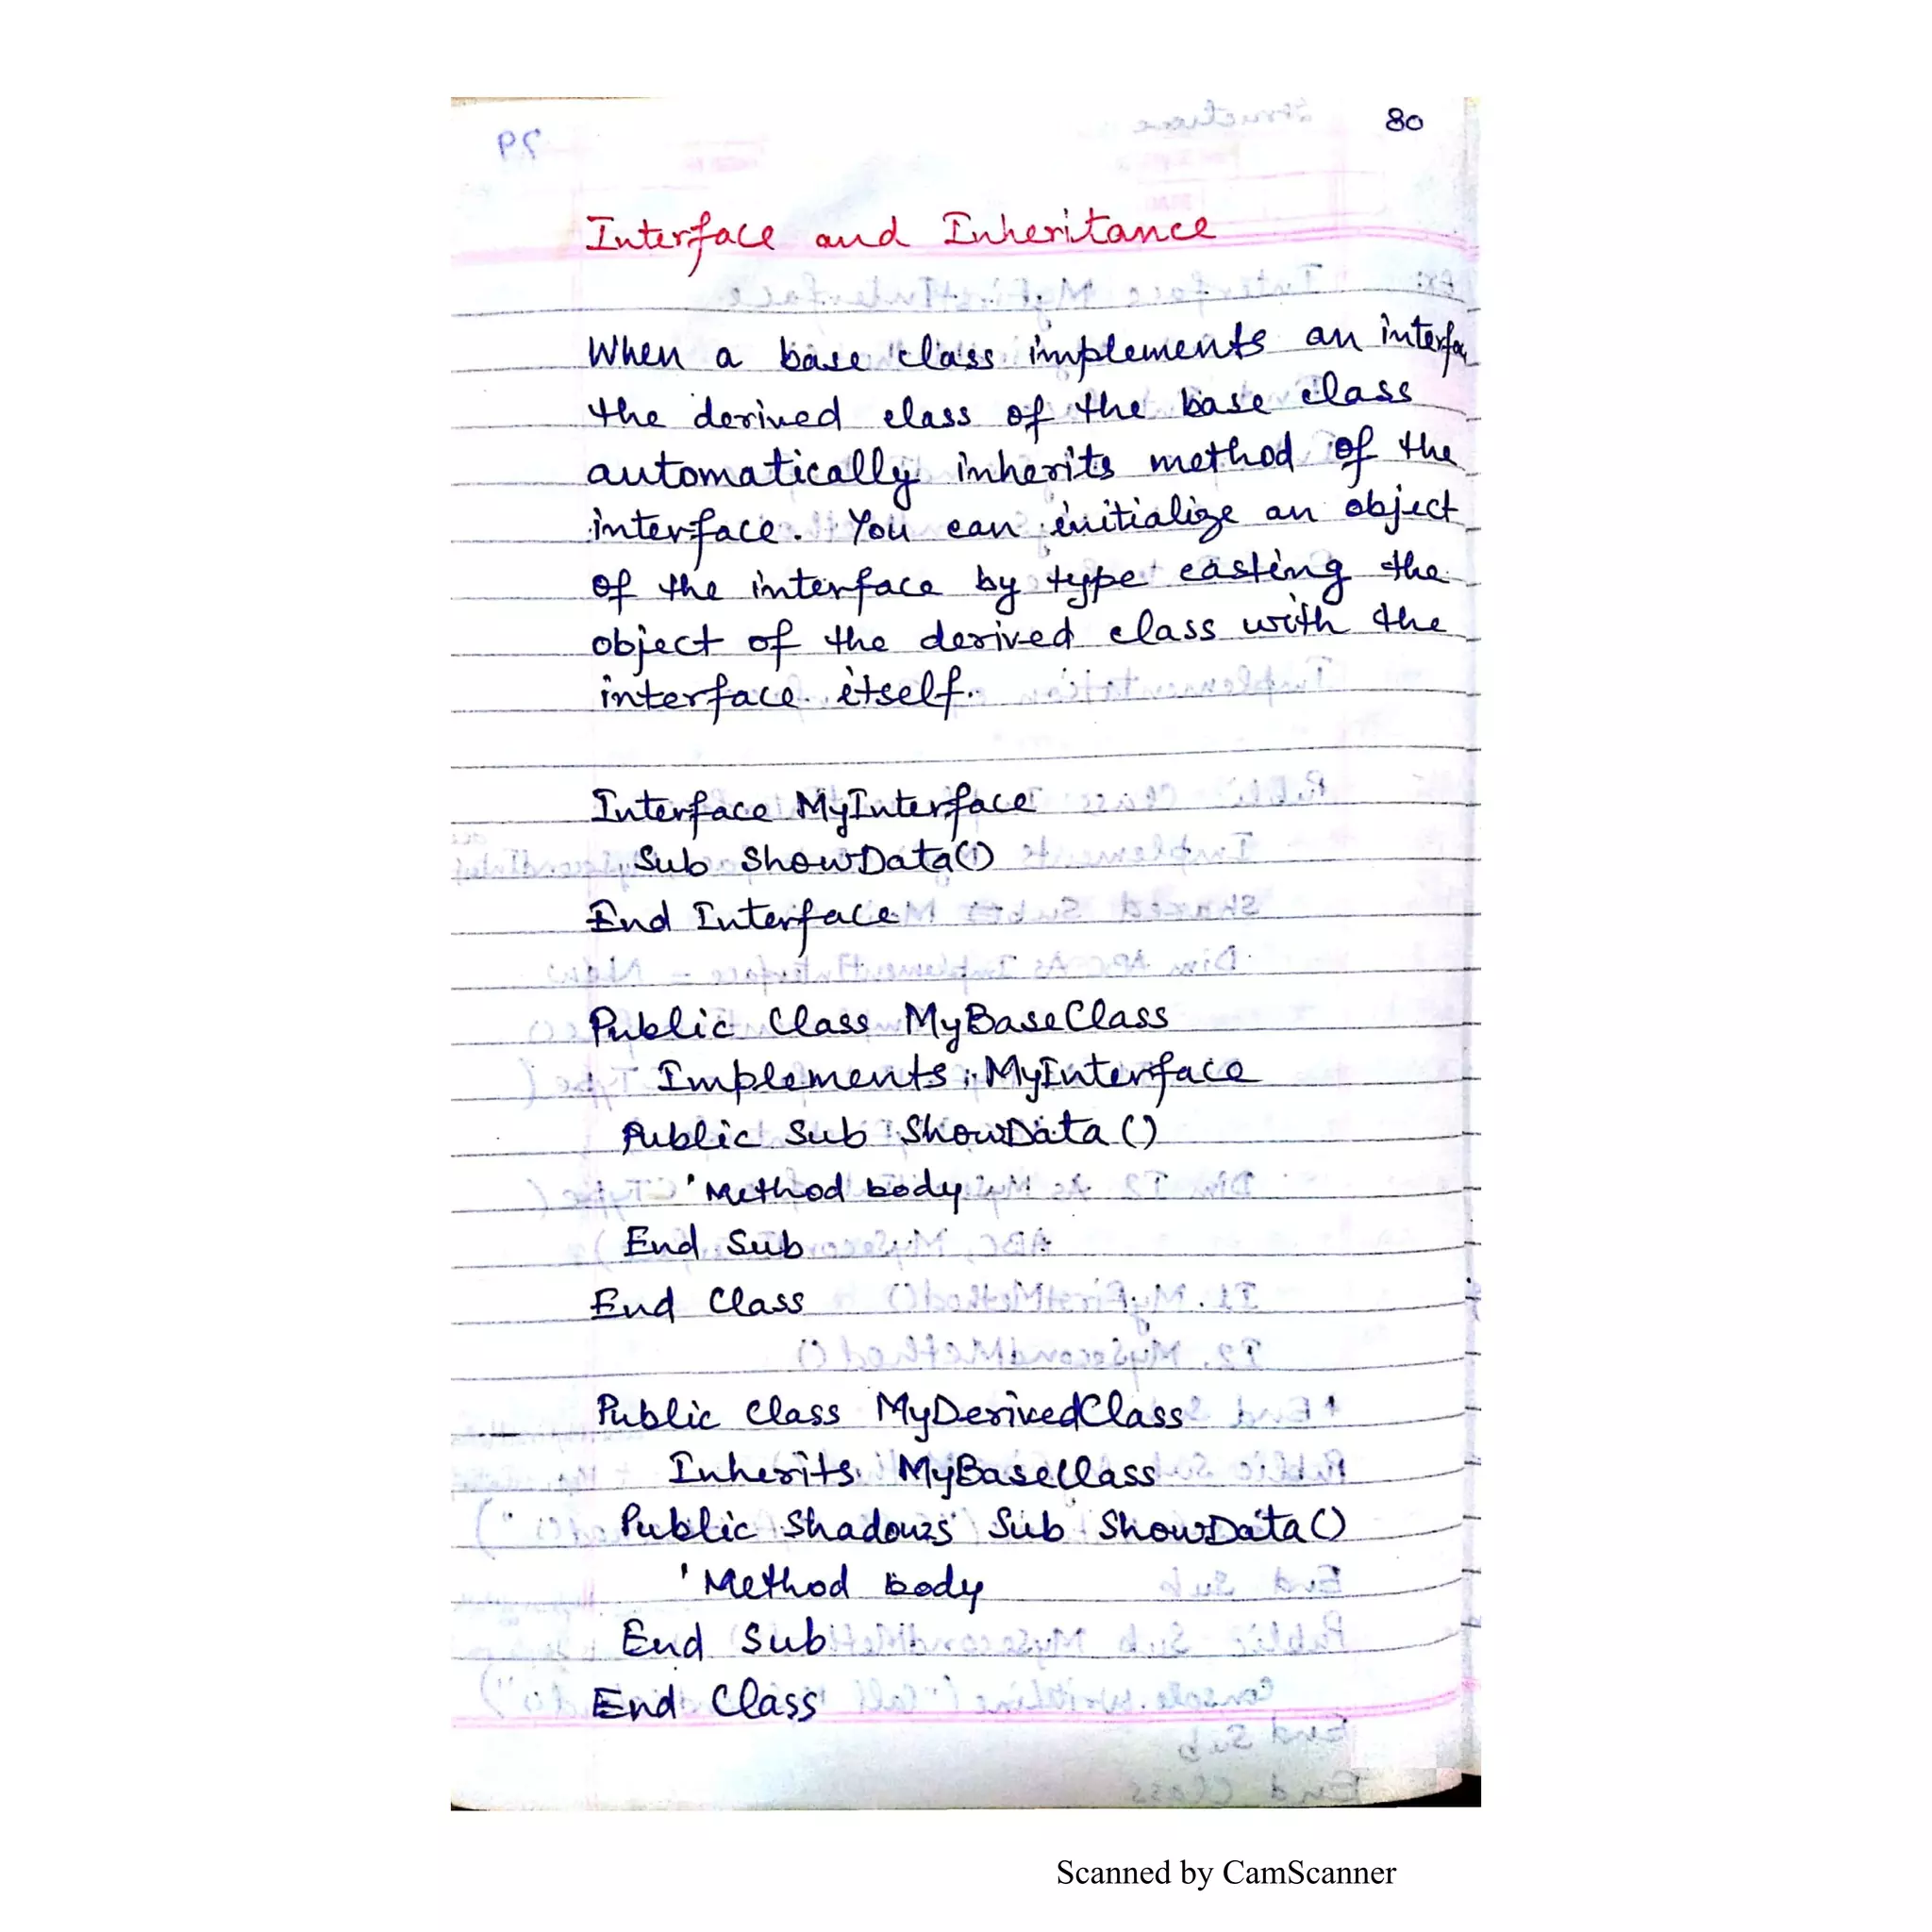 80
Interface and Inheritance
When a base class implements an interfa
the derived class of the base class
automatically inherits method of the
interface. You can initialize an object
of the interface by type casting the
object of the derived class with the
interface itself.
Interface MyInterface
Sub ShowData()
End Interface
Public Class MyBaseClass
Implements MyInterface
Public Sub ShowData()
'Method body
End Sub
End Class
Public Class MyDerivedClass
Inherits MyBaseClass
Public Shadows Sub ShowData()
'Method body
End Sub
End Class
Scanned by CamScanner